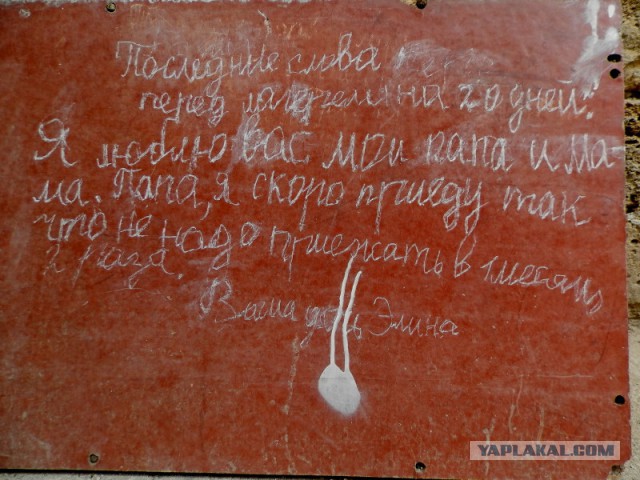 Последние слова
перед лагерем на 20 дней:
Я люблю вас мои папа и ма-
ма. Папа, я скоро приеду так
что не надо приежать в 1 месяц
2 раза.
Ваша дочь Элина
YAPLAKAL.COM